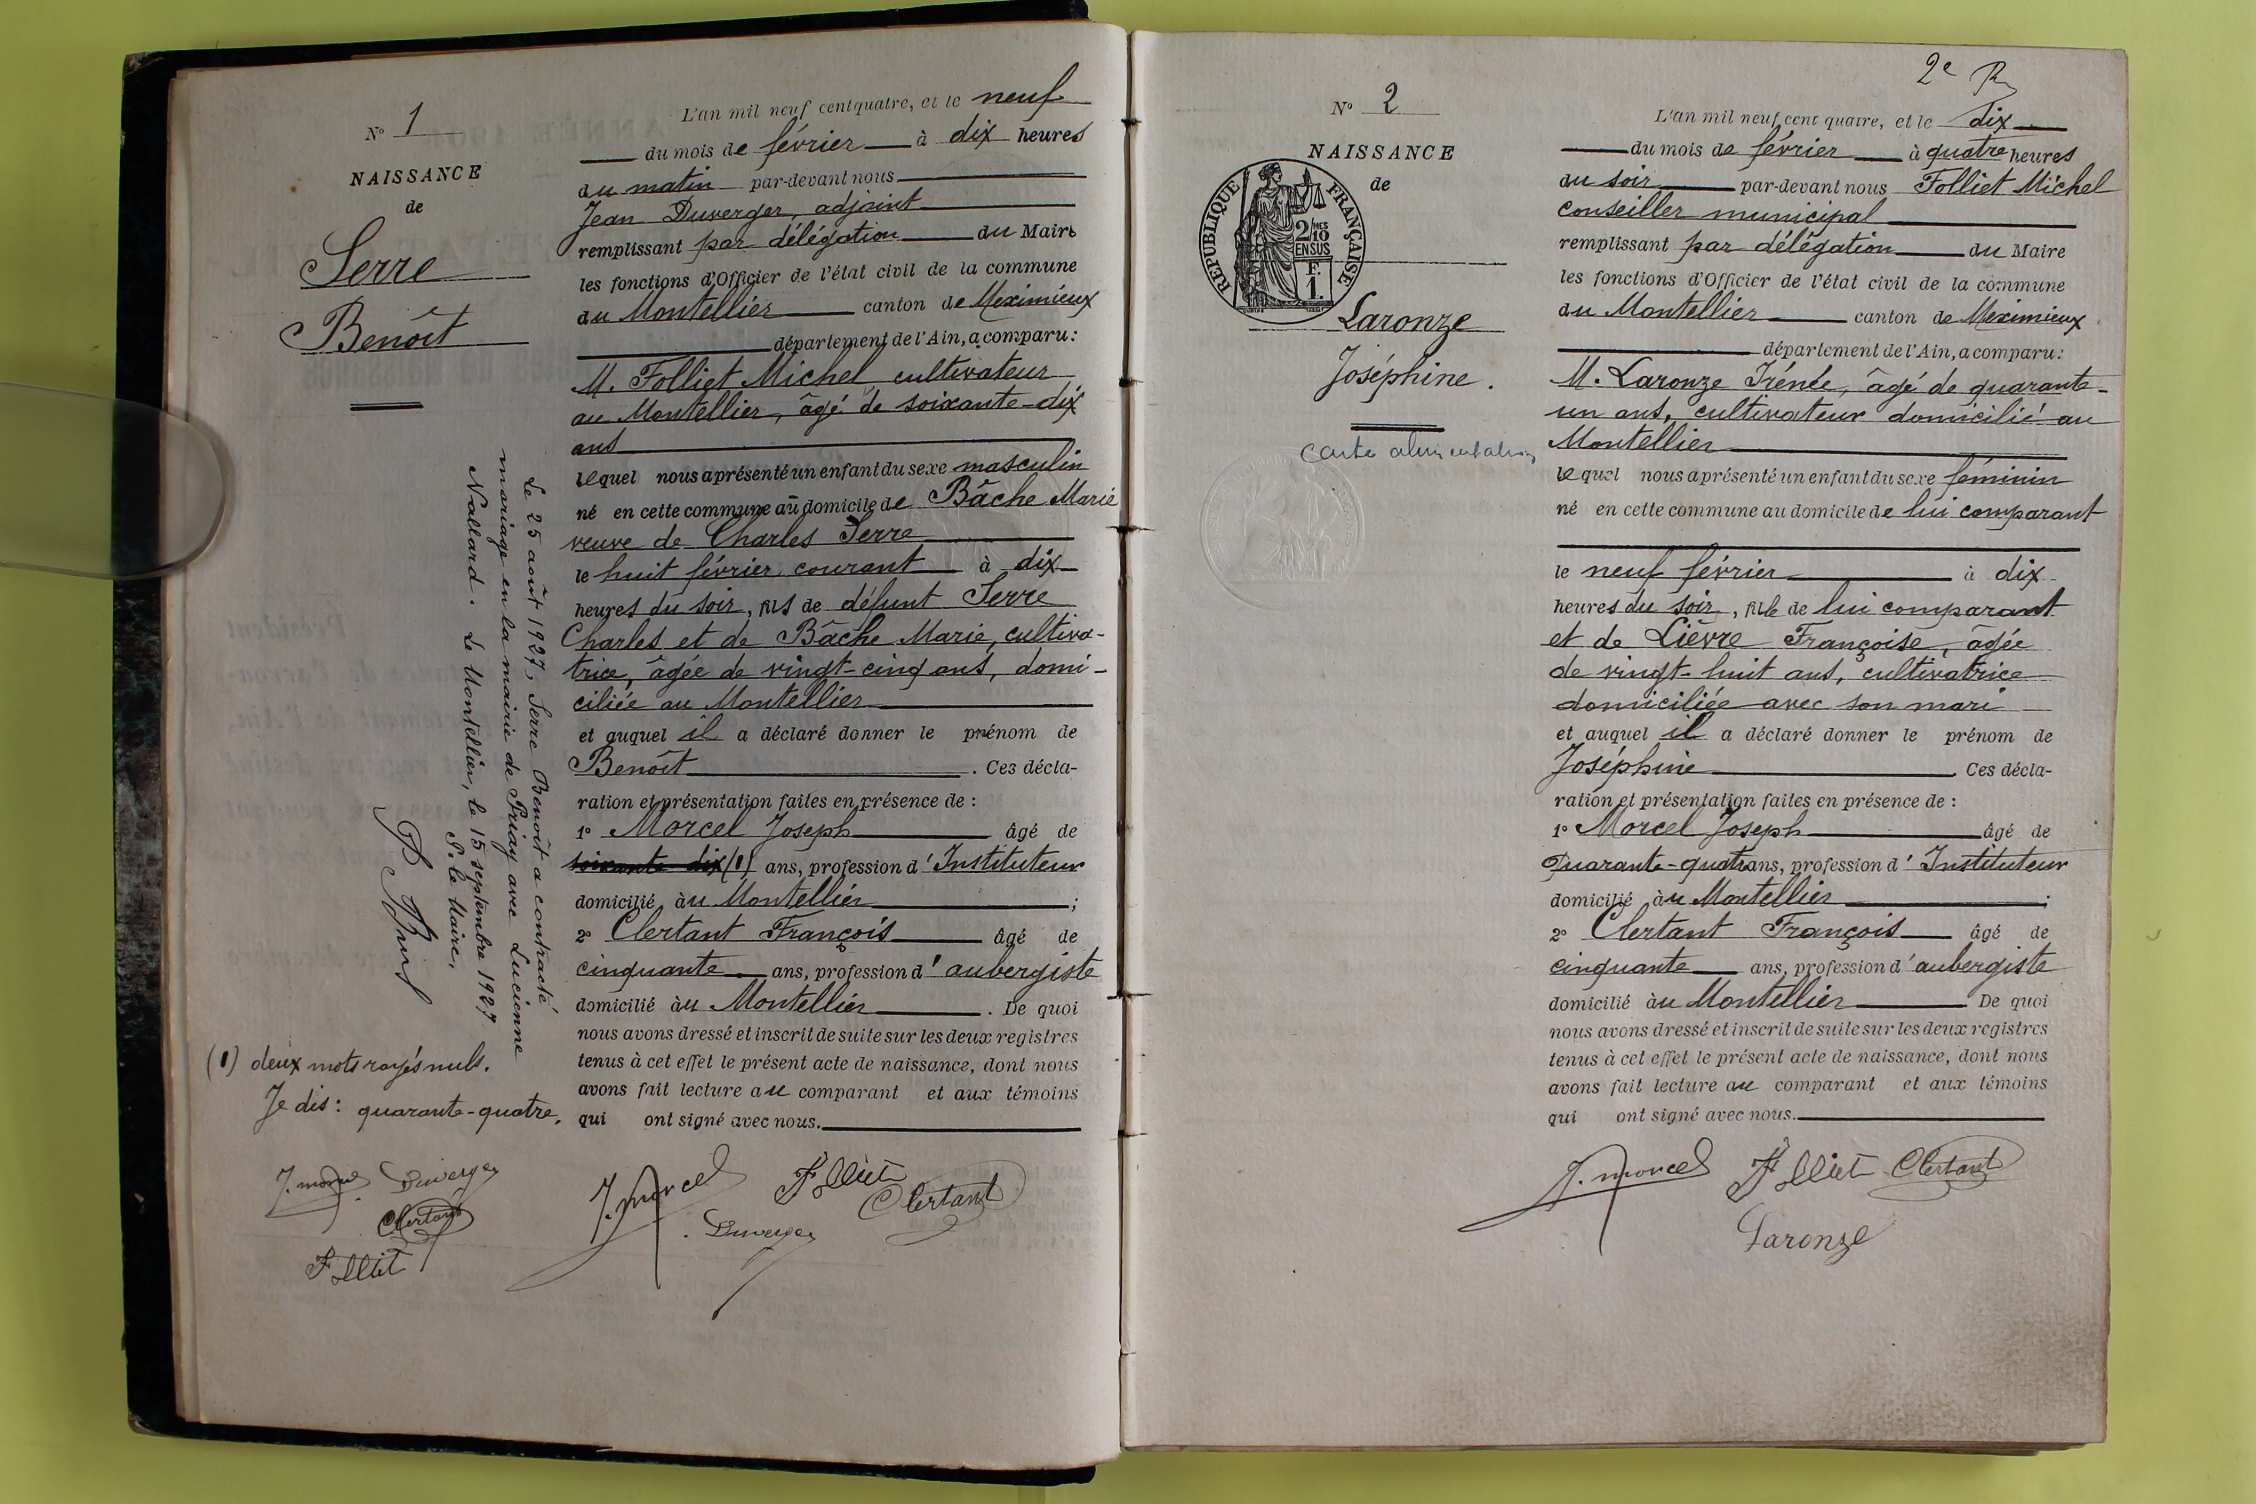 N° 1
NAISSANCE
de
Serre
Benoît
L'an mil neuf cent quatre, et le neuf
du mois de février à dix heures
du matin par-devant nous
Jean Duverger, adjoint
remplissant par délégation du Maire
les fonctions d'Officier de l'état civil de la commune
du Montellier canton de Meximieux
département de l'Ain, a comparu:
M. Folliet Michel cultivateur
au Montellier, âgé de soixante-dix
ans
lequel nous a présenté un enfant du sexe masculin
né en cette commune au domicile de Bâche Marie
veuve de Charles Serre
le huit février courant à dix
heures du soir, fils de défunt Serre
Charles et de Bâche Marie, cultiva-
trice, âgée de vingt-cinq ans, domi-
ciliée au Montellier
et auquel il a déclaré donner le prénom de
Benoît. Ces décla-
ration et présentation faites en présence de :
1° Morcel Joseph âgé de
soixante dix (1) ans, profession d'Instituteur
domicilié au Montellier ;
2° Clertant François âgé de
cinquante ans, profession d'aubergiste
domicilié au Montellier. De quoi
nous avons dressé et inscrit de suite sur les deux registres
tenus à cet effet le présent acte de naissance, dont nous
avons fait lecture au comparant et aux témoins
qui ont signé avec nous.
Le 25 août 1927, Serre Benoît a contracté
mariage en la mairie de Priay avec Lucienne
Nallard. Le Montellier, le 15 septembre 1927
P. le Maire,
(1) deux mots rayés nuls.
Je dis : quarante-quatre.
J. Morcel Duverger
Clertant
Folliet
J. Morcel Folliet Clertant
Duverger
2e R
N° 2
NAISSANCE
de
RÉPUBLIQUE FRANÇAISE
2/10
EN SUS
F.
1.
Laronze
Joséphine.
Carte alimentation
L'an mil neuf cent quatre, et le dix
du mois de février à quatre heures
du soir par-devant nous Folliet Michel
conseiller municipal
remplissant par délégation du Maire
les fonctions d'Officier de l'état civil de la commune
du Montellier canton de Meximieux
département de l'Ain, a comparu:
M. Laronze Irénée, âgé de quarante-
un ans, cultivateur domicilié au
Montellier
lequel nous a présenté un enfant du sexe féminin
né en cette commune au domicile de lui comparant
le neuf février à dix
heures du soir, fille de lui comparant
et de Lièvre Françoise, âgée
de vingt-huit ans, cultivatrice
domiciliée avec son mari
et auquel il a déclaré donner le prénom de
Joséphine. Ces décla-
ration et présentation faites en présence de :
1° Morcel Joseph âgé de
Quarante-quatre ans, profession d'Instituteur
domicilié au Montellier ;
2° Clertant François âgé de
cinquante ans, profession d'aubergiste
domicilié au Montellier De quoi
nous avons dressé et inscrit de suite sur les deux registres
tenus à cet effet le présent acte de naissance, dont nous
avons fait lecture au comparant et aux témoins
qui ont signé avec nous.
J. Morcel Folliet Clertant
Laronze